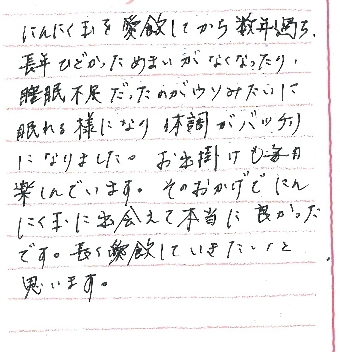 にんにく玉を愛飲してから数年過ち、
長年ひどかっためまいがなくなったり、
睡眠不足だったのがウソみたいに
眠れる様になり体調がバッチリ
になりました。お出掛けも毎日
楽しんでいます。そのおかげでにん
にく玉に出会えて本当に良かった
です。長く愛飲していきたいと
思います。